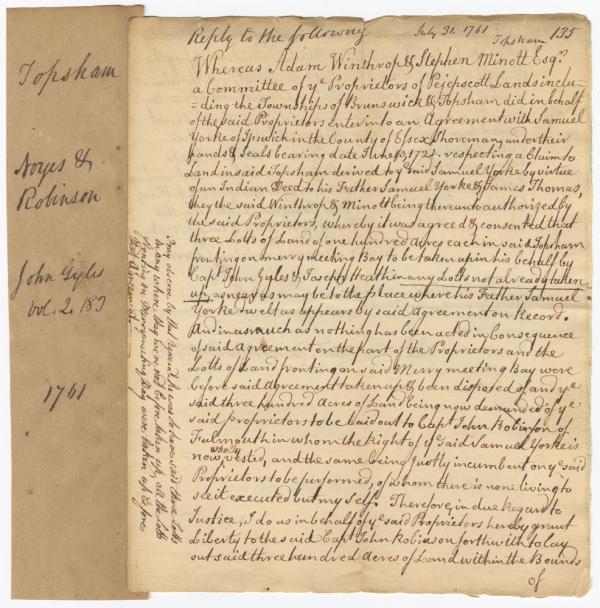 Topsham
Noyes &
Robinson
John Gyles
vol. 2. 183
1761
Reply to the following
July 31. 1761
Topsham
135
Whereas Adam Winthrop & Stephen Minott Esqrs
a Committee of ye Proprietors of Pejepscott Lands inclu=
=ding the Townships of Brunswick & Topsham did in behalf
of the said Proprietors enter into an Agreement with Samuel
Yorke of Ipswich in the County of Essex Shoreman, under their
hands & Seals bearing date June respecting a Claim to
Land in said Topsham derived to ye said Samuel Yorke by virtue
of an Indian Deed to his Father Samuel Yorke & James Thomas,
they the said Winthrop & Minott being thereunto authorized by
the said Proprietors, whereby it was agreed & consented that
three Lotts of Land of one hundred Acres each in said Topsham
fronting on merry meeting Bay to be taken up in his behalf by
Capt John Gyles & Joseph Heath in any Lotts not already taken
up, as near as may be to the place where his Father Samuel
Yorke dwelt as appears by said Agreement on Record.
And inasmuch as nothing has been acted in Consequence
of said Agreement on the part of the Proprietors and the
Lotts of Land fronting on said Merry meeting Bay were
before said Agreement taken up & been disposed of and ye
said three hundred Acres of Land being now demanded of ye
said Proprietors to be laid out to Capt John Robinson of
Falmouth in whom the Right of ye said Samuel Yorke is
now wholly vested, and the same being justly incumbent on ye said
Proprietors to be performed, of whom there is none living to
see it executed but my self. Therefore, in due regard to
Justice, I do as in behalf of ye said Proprietors hereby grant
Liberty to the said Capt John Robinson forthwith to lay
out said three hundred Acres of Land within the Bounds
of
he was to have said three Lotts
in any where they were not before taken up, all the Lotts
fronting on Merrymeeting Bay were taken up before
said Agreement